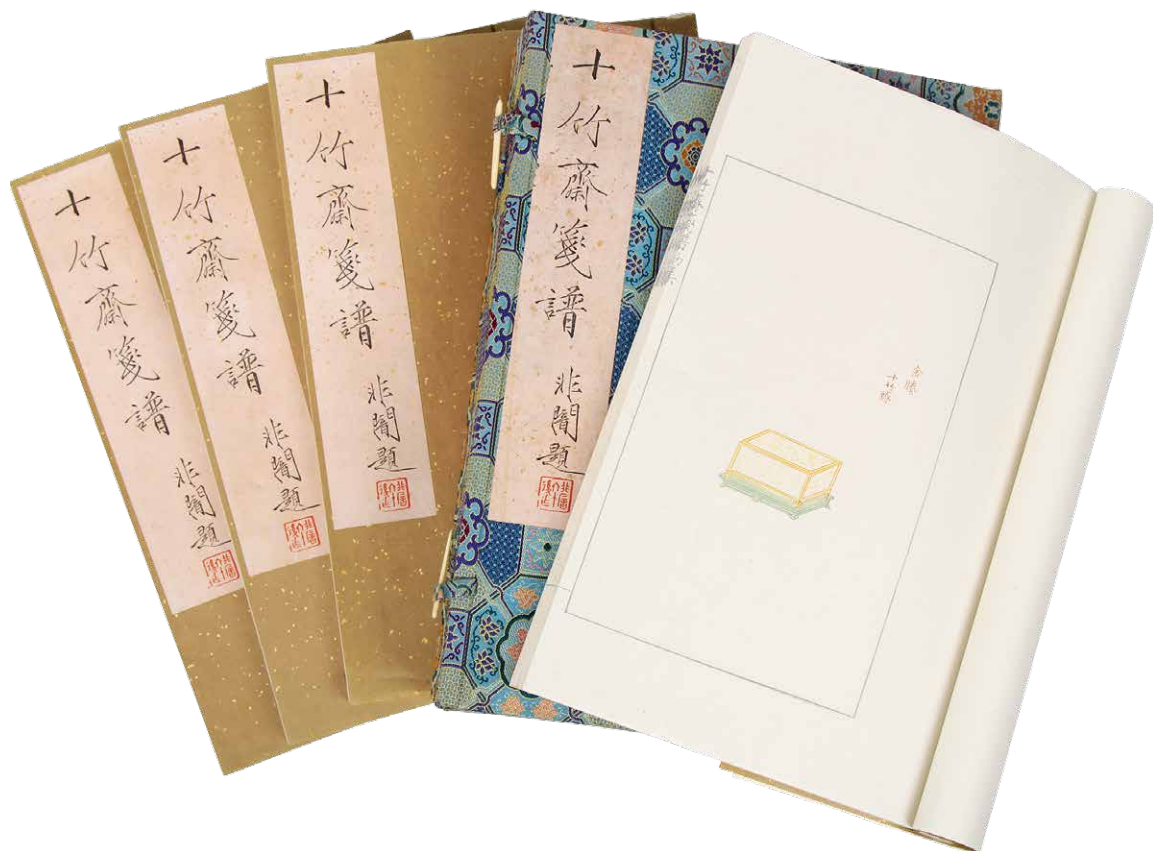 十竹齋箋譜
非闇題
十竹齋箋譜
非闇題
十竹齋箋譜
非闇題
十竹齋箋譜
非闇題
金縢